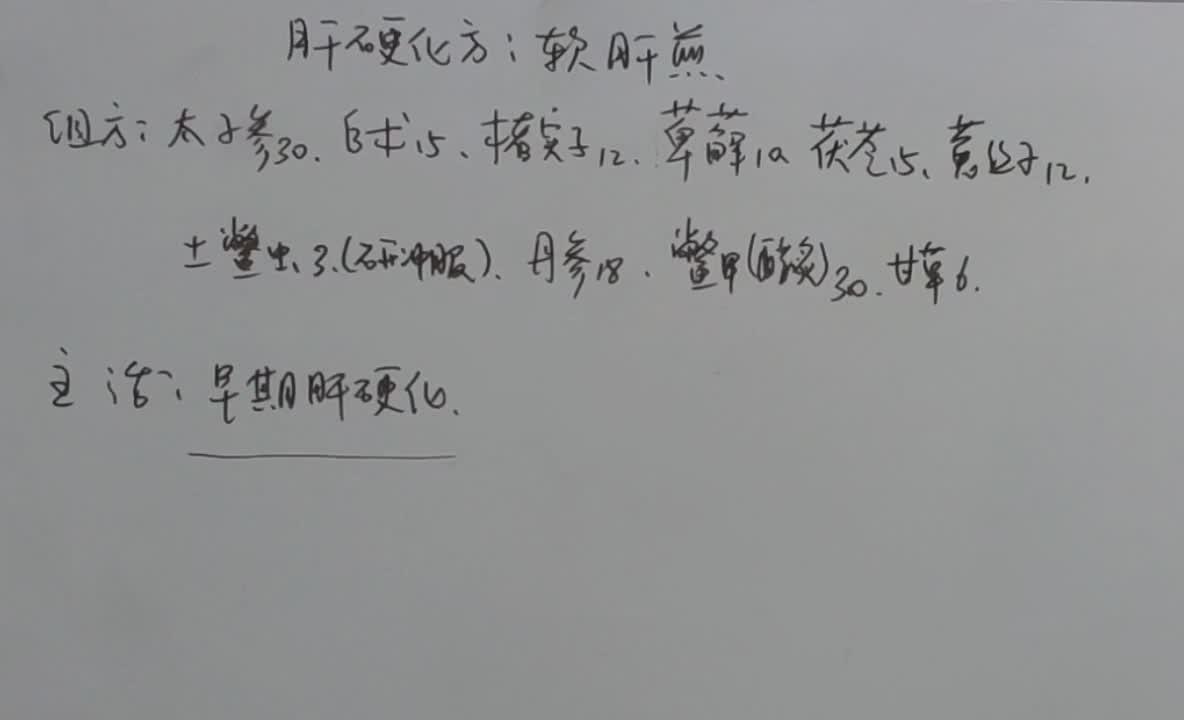 肝硬化方：软肝煎
组方：太子参30、白术15、楮实子12、萆薢10、茯苓15、菟丝子12、
土鳖虫、3、(研冲服)、丹参18、鳖甲(醋炙)30、甘草6.
主治：早期肝硬化.